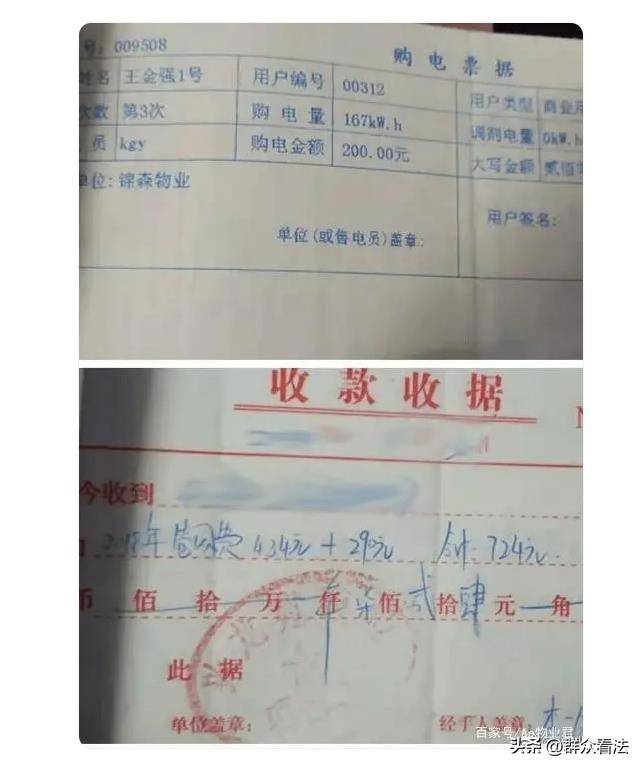 号: 009508
购电票据
姓名 王金强1号 用户编号 00312 用户类型 商业用
次数 第3次 购电量 167kW.h 调剂电量 0kW.h
员 kgy 购电金额 200.00元 大写金额 贰佰
单位: 锦森物业
用户签名:
单位(或售电员)盖章:
收款收据
今收到
2018年 434元+290元 合计:724元.
币 佰 拾 万 仟 柒佰 贰拾肆元 角
此据
单位盖章: 经手人盖章:
百家号/Ae物业君
头条 @群众看法